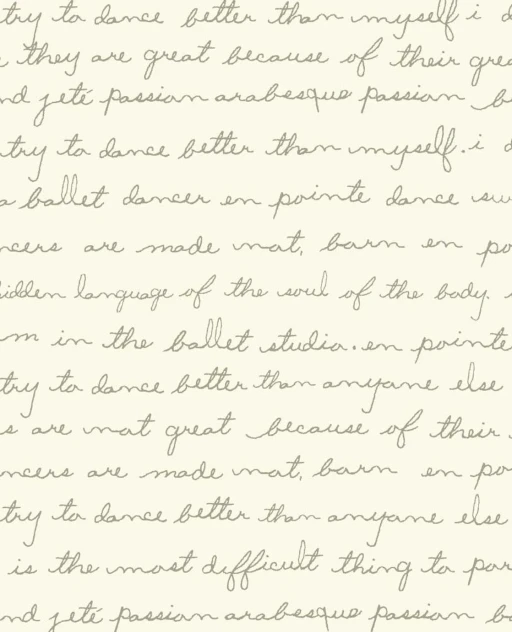 try to dance better than myself i
they are great because of their
nd jeté passion arabesque passion
try to dance better than myself. i
a ballet dancer en pointe dance
ncers are made not, born en
hidden language of the soul of the body.
m in the ballet studio. en pointe
try to dance better than anyone else
s are not great because of their
ncers are made not, born en
try to dance better than anyone else
is the most difficult thing to
nd jeté passion arabesque passion